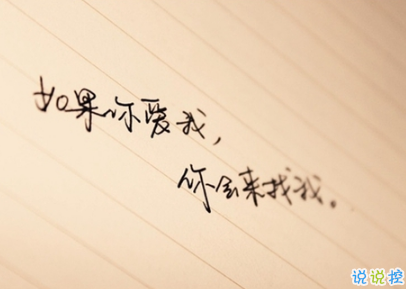 如果你爱我，
你会来找我。
说说控